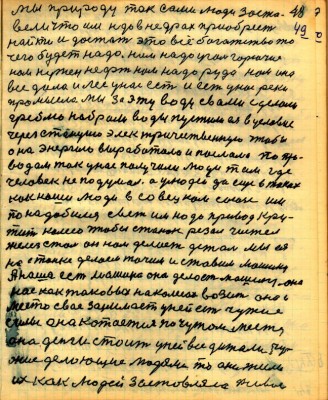 мы природу так сами люди заста- 48
вел что им надо в недрах приобрест 49
найти и достат это всё богатьство то
чего будет надо. нам надо угол горючие
нам нужен нефт нам надо руда нам она
все дала и лес у нас ест и ест у нас реки
промысела мы за эту воду с вами сделали
греблю набрали воды пустили ея в условие
через станцию электрическую чтобы
она энергию выработала и послала по про-
водам так у нас получили люди там где
человек не подумал. а у людей за еще в таких
как наши люди в совецком союзе им
понадобился свет им надо привод кру-
тит колесо чтобы станок резал
железо стал он нам делает детал мы ея
на станке делаем точим и ставим машину
А наша ест машина она делает машину. она
нас как таковых на колесо возит она
место свае занимает у ней ест чужие
силы она котается почутом места
она денги стоит у ней все детали чу-
жие делающие людями то они жили
их как людей заставляла жив